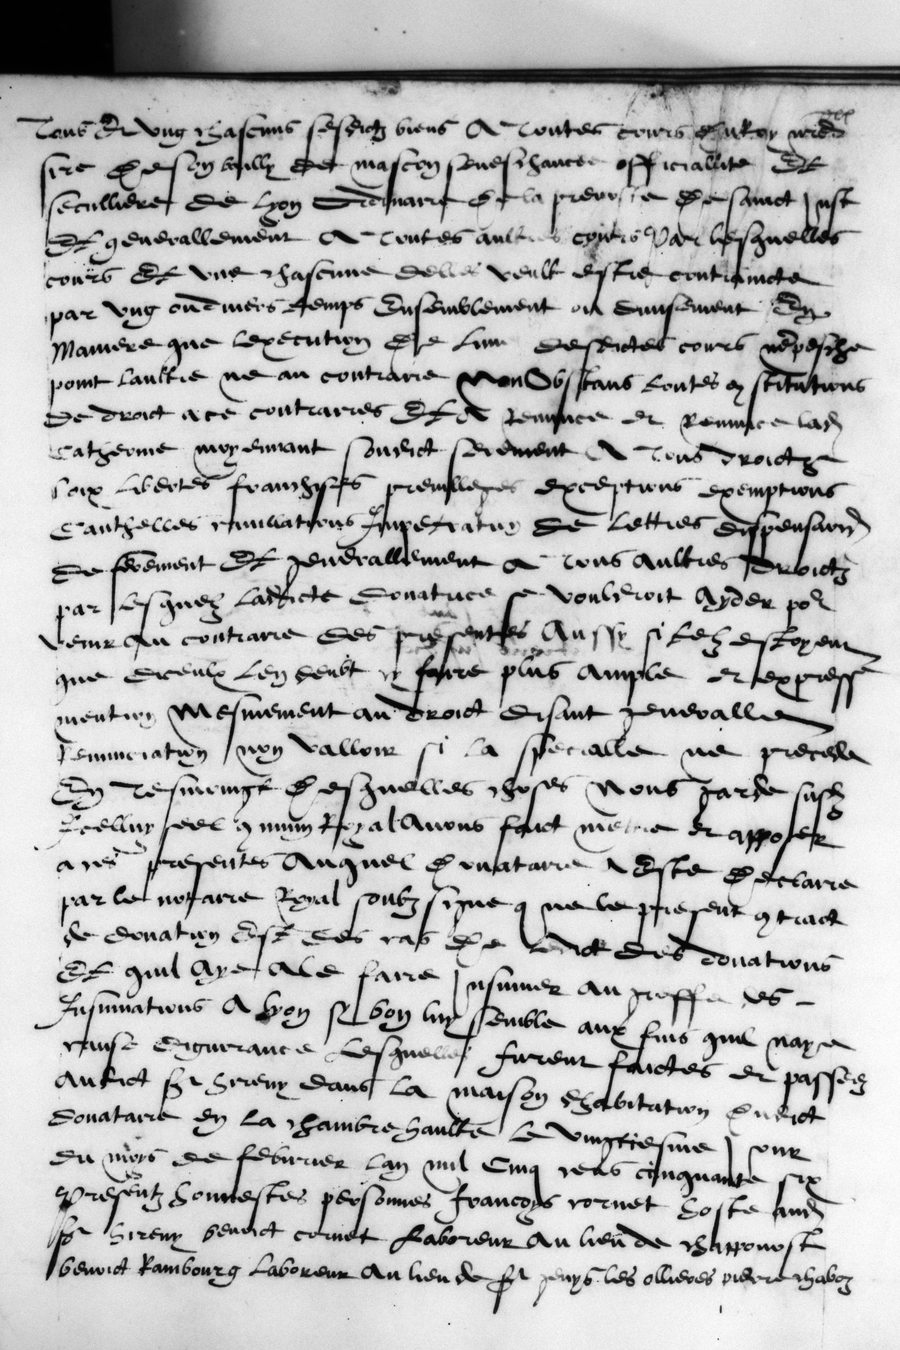 Tous Et ung chascuns sesdictz biens A toutes cours du Roy nred
sire de son bailly de mascon seneschaucee officiallite Et
seculliere de Lyon Ordinaire de la prevoste de sainct Just
Et generallement A toutes aultres cours Par lesquelles
cours Et une chascune delles veult estre contraincte
par ung ou divers temps Ensemblement ou divisement En
Maniere que lexecution de lune desdictes cours nempesche
point laultre ne au contraire NonObstans toutes constitutions
de droict a ce contraires Et A Renunce et Renunce lad
Catherine moyennant sondict serement A tous droictz
loix libertes franchises previlleges exceptions exemptions
Cauthelles cavillations Impetration de lettres dispensation
de serement Et generallement A tous aultres droictz
par lesquelz ladicte donatrice se vouldroit Ayder pour
venir Au contraire des presentes Aussy si telz estoyent
que diceulx Len deubt cy faire plus ample et expresse
mention Mesmement au droict disant generalle
Renunciation non valloir si la specialle ne precede
En Tesmoingt Desquelles choses Nous garde susd
Icelluy seel commun Royal Avons faict mettre et apposer
a ces presentes Auquel donataire A Este declaire
par le notaire Royal soubz signe que le present contract
de donation Est des cas de ledict des donations
Et quil Aye A le faire Insinuer au greffe des
Insinuations A Lyon sy bon luy semble aux fins quil naye
cause dignorance Lesquelles furent faictes et passees
Audict St hireny dans la maison dhabitation dudict
donataire en la chambre haulte Le vingtiesme Jour
du moys de febvrier lan mil Cinq cens cinquante six
Presentz honnestes personnes francoys cornet hoste aud
St hireny benoict cornet Laboreur Au lieu de chapponost
benoict Rambourg Laboreur Au lieu de St genys les ollieres pierre chaboz